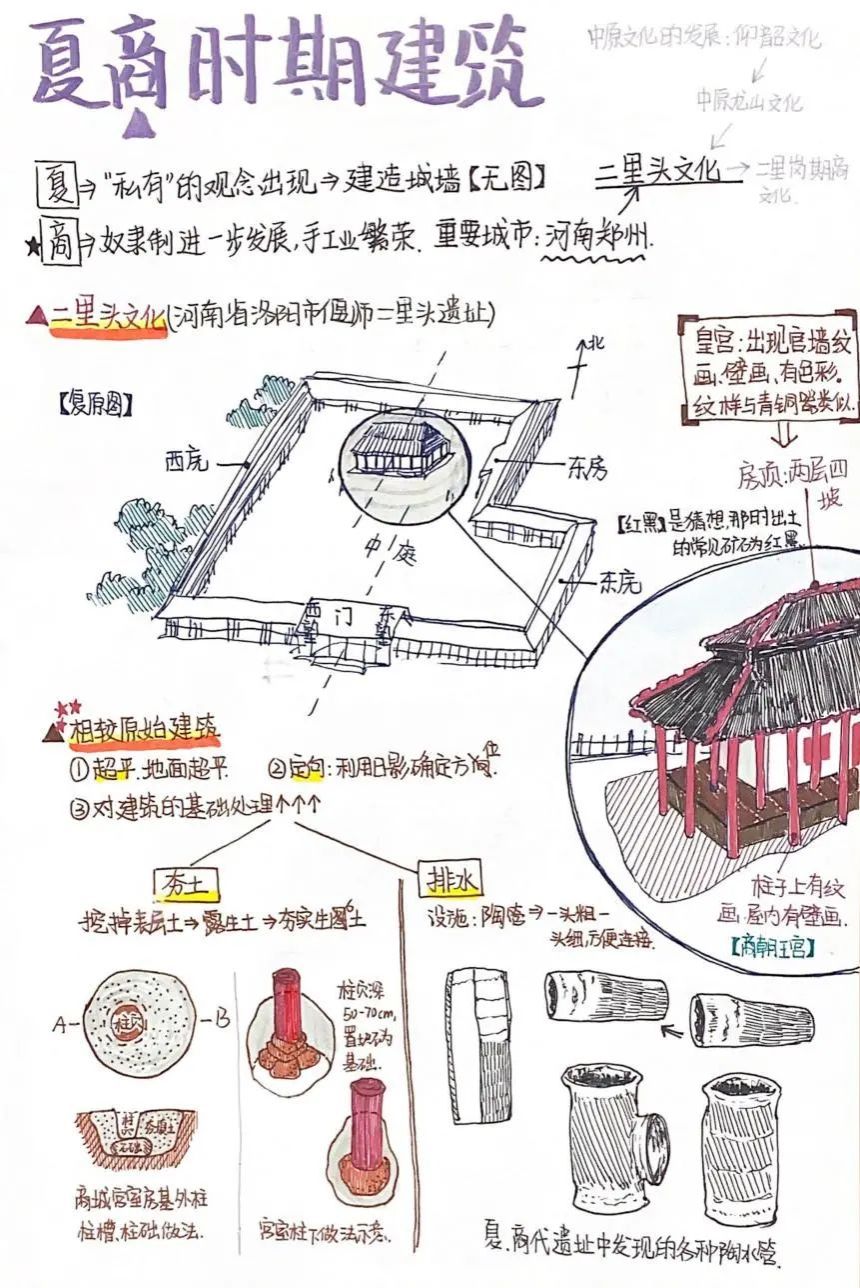 夏商时期建筑
中原文化的发展：仰韶文化
中原龙山文化
夏→"私有"的观念出现→建造城墙【无图】
二里头文化→二里岗期商
文化.
★商→奴隶制进一步发展,手工业繁荣.重要城市:河南郑州.
▲二里头文化(河南省洛阳市偃师二里头遗址)
皇宫:出现宫墙纹
画、壁画、有色彩。
纹样与青铜器类似.
【复原图】
北
西庑
东房
房顶:两层四
坡
【红黑】是猜想,那时出土
的常见矿石为红黑.
中庭
东庑
西塾 门 东塾
★★★
▲相较原始建筑
①超平.地面超平. ②定向:利用日影确定方向位
③对建筑的基础处理↑↑↑
夯土
排水
挖掉表层土→露生土→夯实生图土
设施:陶管→一头粗一
头细,方便连接.
柱子上有纹
画.屋内有壁画.
【商朝王宫】
A- 柱穴 -B
柱穴深
50-70cm,
置础石为
基础.
柱穴 夯填土
石础
商城宫室房基外柱
柱槽、柱础做法.
宫室柱下做法示意.
夏、商代遗址中发现的各种陶水管.